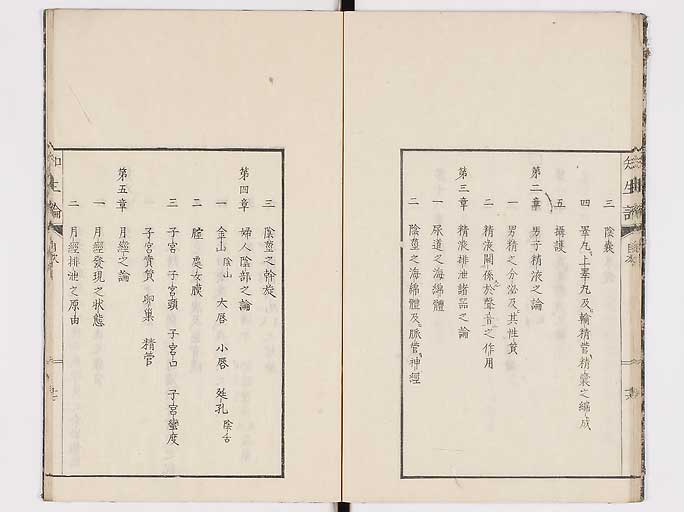 三 陰嚢
四 睪丸上睪丸及輸精管精嚢之編成
五 攝護
第二章 男子精液之論
一 男精之分泌及其性質
二 精液關係於聲音之作用
第三章 精液排泄諸器之論
一 尿道之海綿體
二 陰莖之海綿體及脈管神經
三 陰莖之幹旋
第四章 婦人陰部之論
一 金山 陰山 大唇 小唇 挺孔 陰舌
二 膣 處女膜
三 子宮 子宮頸 子宮口 子宮蠻度
子宮實質 卵巢 精管
第五章 月經之論
一 月經發現之状態
二 月經排泄之原由